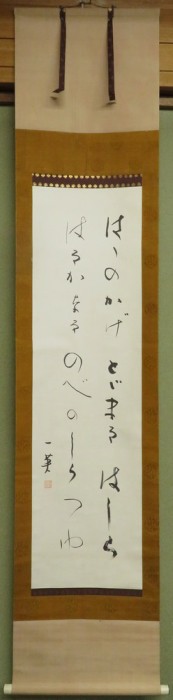 はゝのかげ とゞまる はしら
はるかなる のべの しらつゆ
一葉